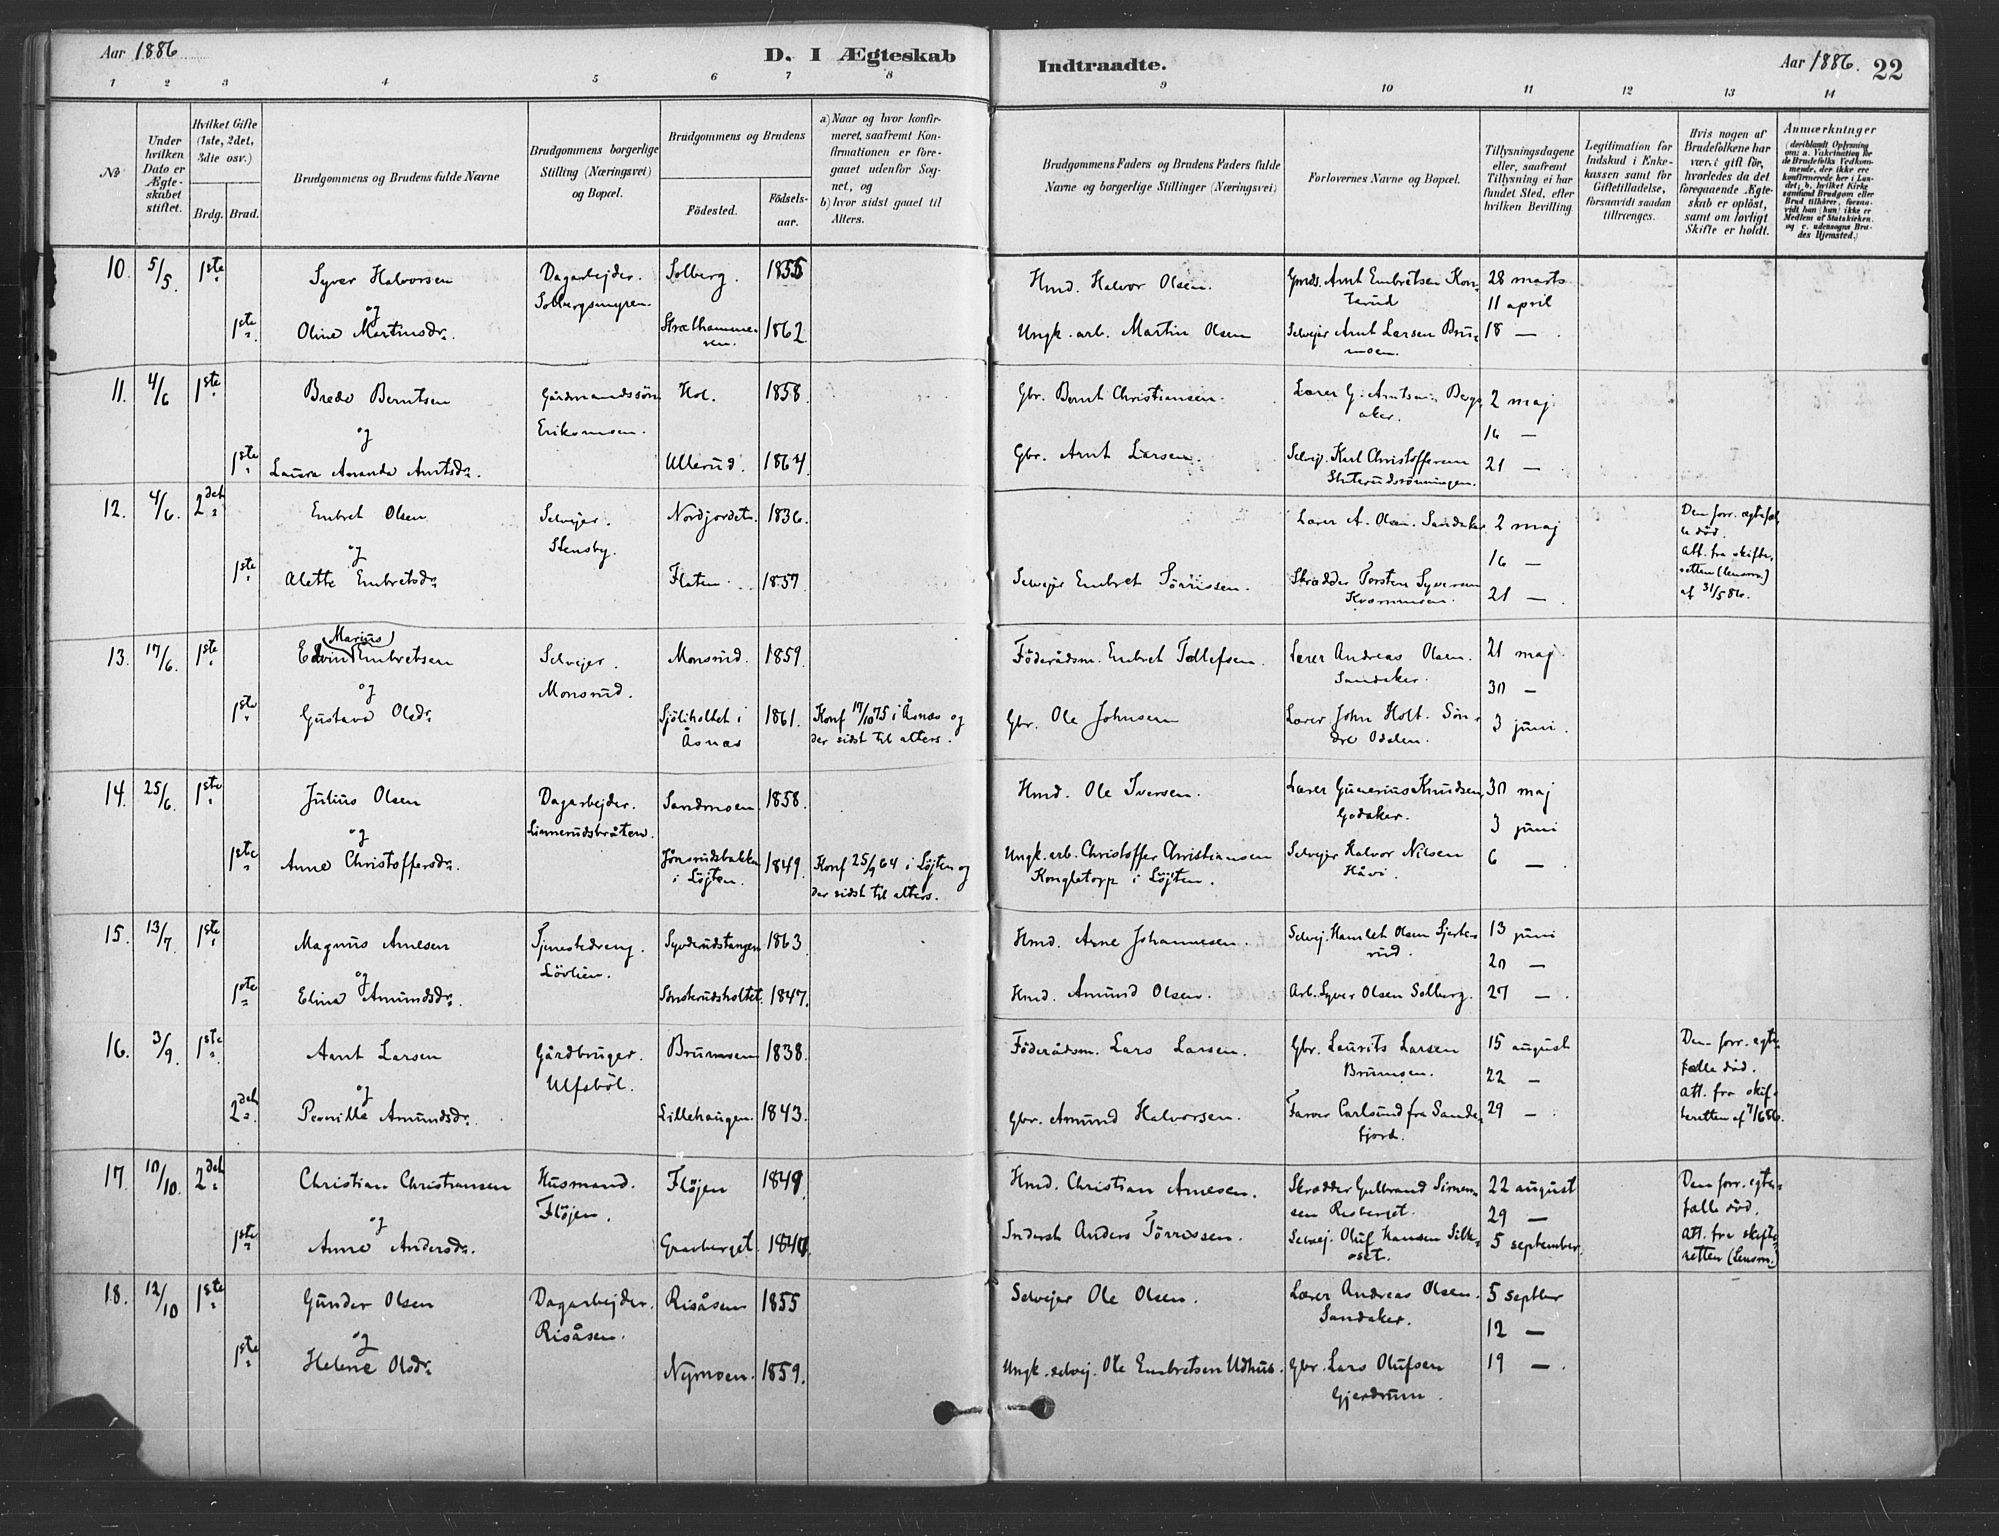 Aar 1886
D. I Ægteskab
Indtraadte.
Aar 1886.
22
1 2 3 4 5 6 7 8
9 10 11 12 13 14
No
Under hvilken Dato er Ægteskabet stiftet.
Hvilket Gifte (1ste, 2det, 3die osv.)
Brdg. Brud.
Brudgommens og Brudens fulde Navne
Brudgommens borgerlige Stilling (Næringsvei) og Bopæl.
Brudgommens og Brudens
Fødested.
Fødselsaar.
a) Naar og hvor konfirmeret, saafremt Konfirmationen er foregaaet udenfor Sognet, og
b) hvor sidst gaaet til Alters.
Brudgommens Faders og Brudens Faders fulde Navne og borgerlige Stillinger (Næringsvei)
Forlovernes Navne og Bopæl.
Tillysningsdagene eller, saafremt Tillysning ei har fundet Sted, efter hvilken Bevilling
Legitimation for Indskud i Enkekassen samt for Giftetilladelse, forsaavidt saadan tiltrænges.
Hvis nogen af Brudefolkene har været gift før, hvorledes da det foregaaende Ægteskab er opløst, samt om lovligt Skifte er holdt.
Anmærkninger
(deriblandt Oplysning om: a. Vakcination for de Brudefolks Vedkommende, der ikke ere konfirmerede her i Landet; b. hvilket Kirkesamfund Brudgom eller Brud tilhører, forsaavidt han (hun) ikke er Medlem af Statskirken, og c. udensogns Brudes Hjemsted.)
10. 5/5. 1ste Syver Halvorsen Dagarbejder. Solberg. 1855 Hmd. Halvor Olsen. Gmds. Arnt Embretsen Kon- 28 marts
og Solbergsmyren terud 11 april
1ste Oline Martinsdr. Strælhammeren. 1862. Ungk. arb. Martin Olsen Selvejer Arnt Larsen Brumoen. 18 —
11. 4/6 1ste Brede Berntsen Gårdmandssøn Hol. 1858. Gbr. Bernt Christiansen. Lærer G. Arntsen Bergsaker. 2 maj
og Eriksmoen. 16 —
1ste Laura Amanda Arntsdr. Ullerud. 1864 Gbr. Arnt Larsen. Selvej. Karl Christoffersen 21 —
12. 4/6. 2det Embret Olsen Selvejer. Nordjordet. 1836. Lærer A. Olsen. Sandaker 2 maj Den forr. ægtefælle død.
og Stensby. 16 — Att. fra skifteretten (lensm.)
1ste Alette Embretsdr. Flaten. 1857. Selvejer Embret Tørrissen. Skrædder Torsten Syversen 21 — af 31/5 86.
13. 17/6. 1ste Edvin (Marius) Embretsen Selvejer. Monsrud. 1859. Föderådsm. Embret Tollefsen. Lærer Andreas Olsen. 21 maj
og Monsrud. Sandaker. 30 —
1ste Gustava Olsdr. Sjöliholtet i Åsnæs 1861. Konf 17/10 75 i Åsnæs og Gbr. Ole Johnsen Lærer John Holt. Sön- 3 juni.
der sidst til alters. dre Odalen.
14. 25/6. 1ste Julius Olsen Dagarbejder. Sandmoen 1858. Hmd. Ole Iversen. Lærer Gunerius Knudsen, 30 maj
og Linnerudsbråten. Godaker. 3 juni
1ste Anne Christoffersdr. Jönsrudsbakken i Löjten. 1849. Konf 25/9 64 i Löjten og Ungk. arb. Christoffer Christiansen Selvejer Halvor Nilsen 6 —
der sidst til alters. Kongletorp i Löjten. Håvi.
15. 13/7. 1ste Magnus Arnesen Tjenestedreng. Syverudstangen 1863 Hmd. Arne Johannesen. Selvej. Hamlet Olsen 13 juni
og Lövlien. 20 —
1ste Elina Amundsdr. Sönskrudsholtet. 1847. Hmd. Amund Olsen. Arb. Syver Olsen Solberg. 27 —
16. 3/9. 1ste Arnt Larsen Gårdbruger. Brumoen 1838. Föderådsm. Lars Larsen. Gbr. Laurits Larsen 15 august Den forr. egte-
og Ulfsböl. Brumoen. 22 — fælle död.
2det Pernille Amundsdr. Lillehaugen 1843. Gbr. Amund Halvorsen. Farver Carlsund fra Sande- 29 — Att. fra skif-
fjord. teretten af 7/6 86.
17. 10/10. 2det Christian Christiansen Husmand. Flöjen 1849 Hmd. Christian Arnesen. Skrædder Gulbrand Simen- 22 august Den forr. egte-
og Flöjen. sen Risberget. 29 — fælle död.
1ste Anne Andersdr. Gravberget. 1840. Inderst Anders Tørrissen. Selvej. Oluf Hansen Silk- 5 september. Att. fra skifte-
oset. retten (lensm.)
18. 12/10 1ste Gunder Olsen Dagarbejder. Risåsen 1855 Selvejer Ole Olsen. Lærer Andreas Olsen. 5 septbr
og Risåsen. Sandaker. 12 —
1ste Helene Olsdr. Nymoen. 1859. Ungk. selvej. Ole Embretsen Udhus. Gbr. Lars Olufsen 19 —
Gjerdrum.